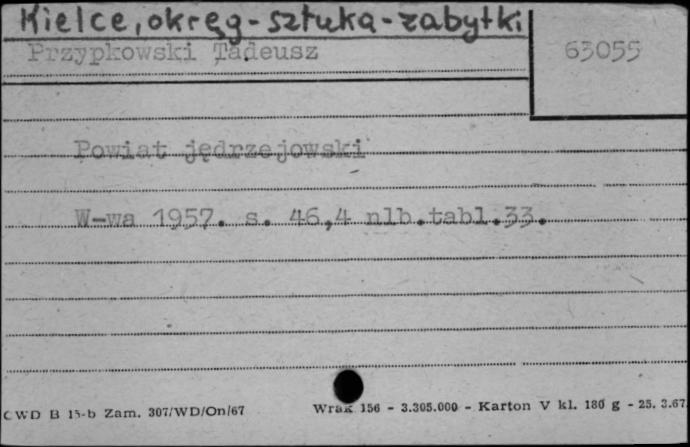 Kielce, okręg - sztuka - zabytki
Przypkowski Tadeusz
63055
Powiat jędrzejowski
W-wa 1957. s. 46,4 nlb.tabl.33.
CWD B 15-b Zam. 307/WD/On/67 Wrak 156 - 3.305.000 - Karton V kl. 180 g - 25. 3.67